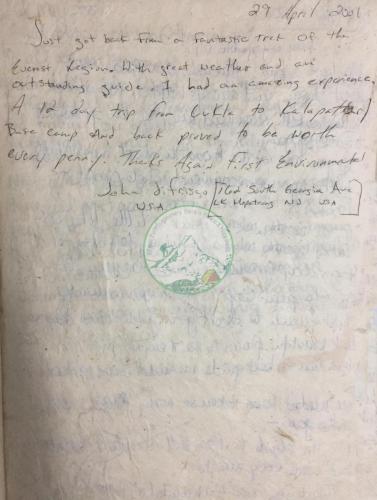 29 April 2001
Just got back from a fantastic trek of the
Everest Region. With great weather and an
outstanding guide. I had an amazing experience.
A 12 day trip from Lukla to Kalapattar/
Base camp and back proved to be worth
every penny. Thaks Again First Environmental
John
USA
South Georgia Ave
NJ USA